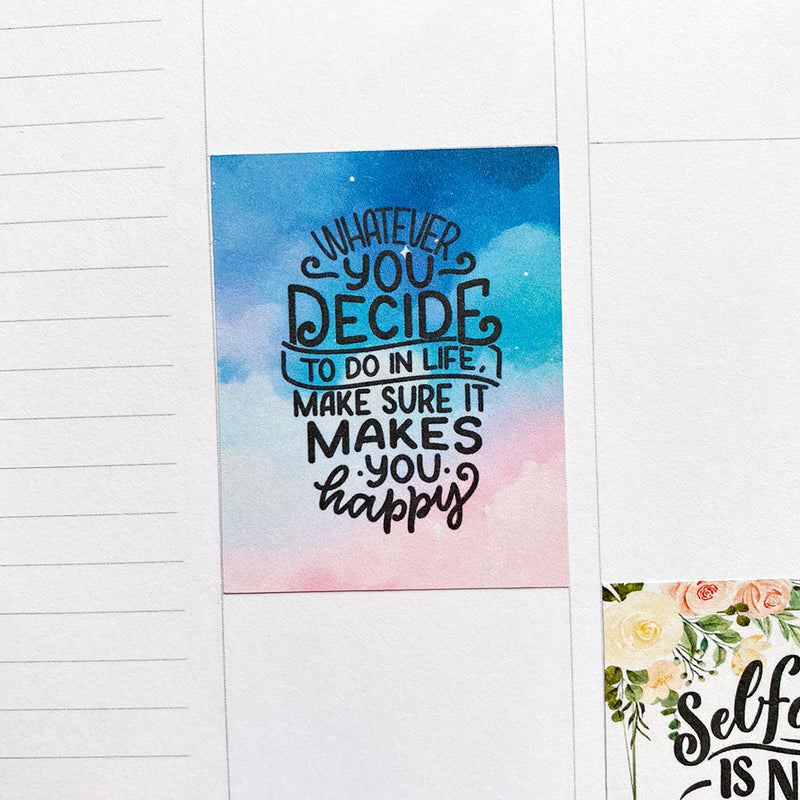 WHATEVER
YOU
DECIDE
TO DO IN LIFE,
MAKE SURE IT
MAKES
YOU
happy
IS